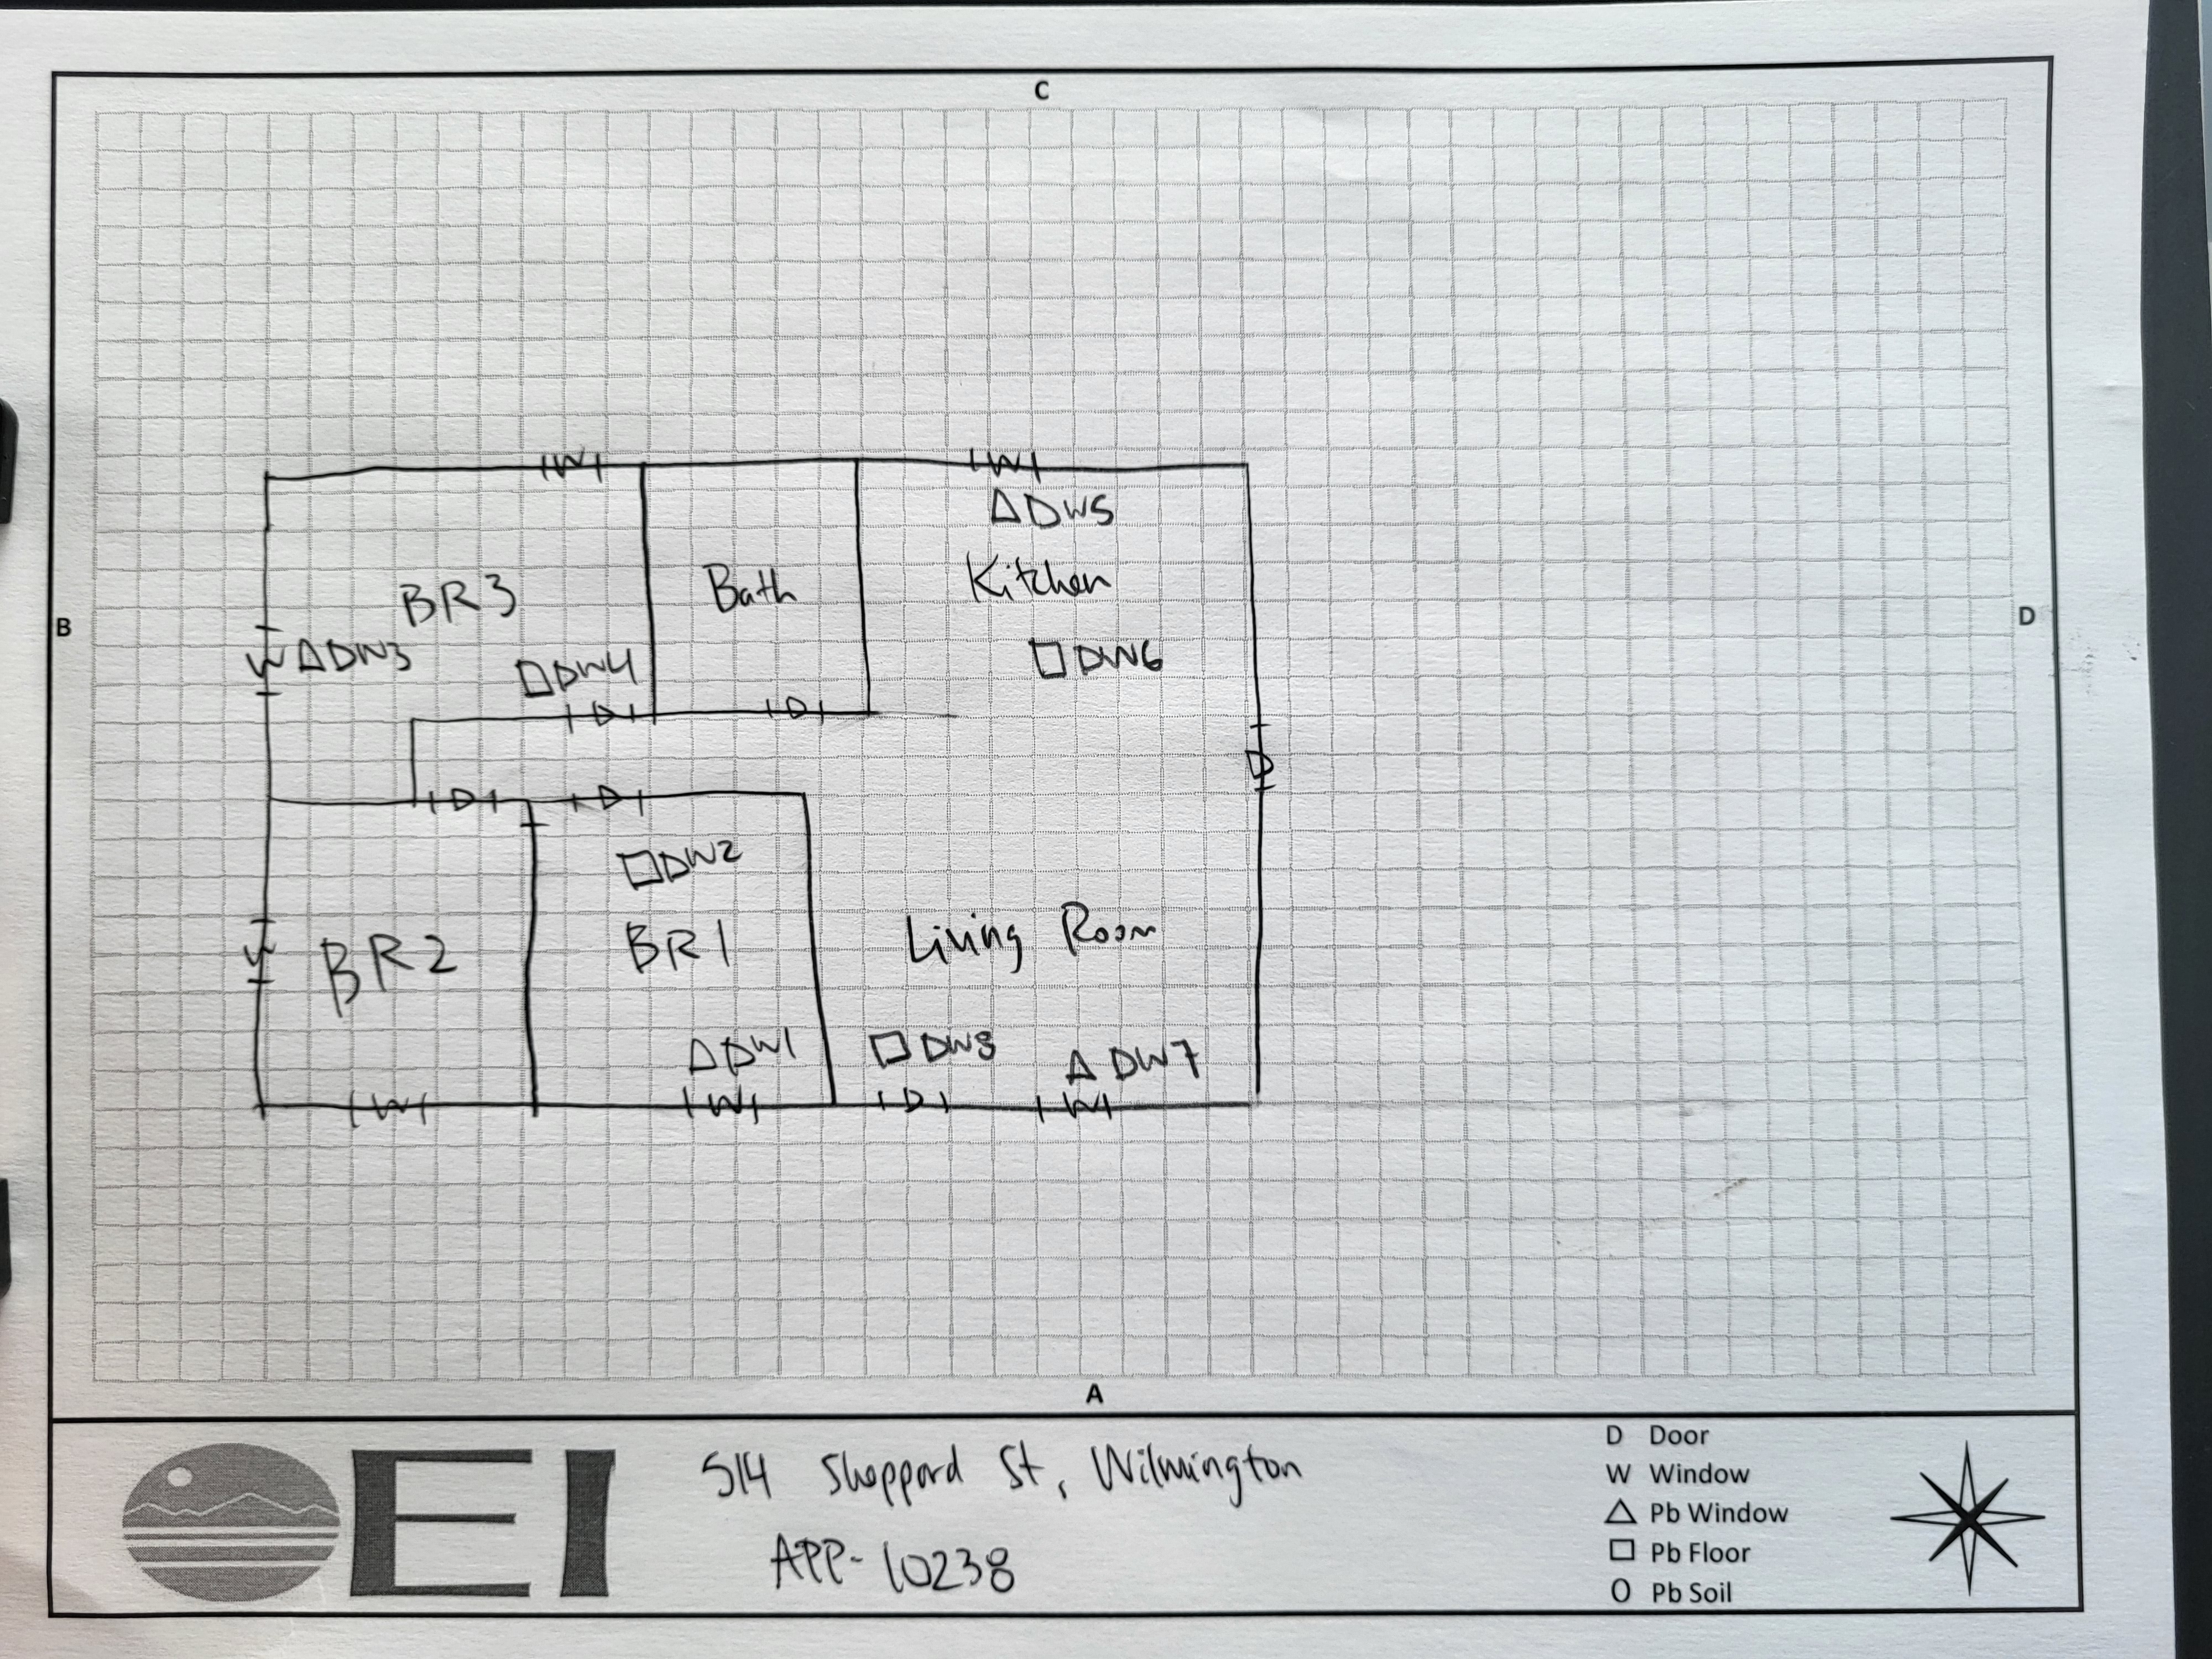 C
W
W
△DW5
BR3
Bath
Kitchen
B
D
W △DW3
□DW4
□DW6
D
D
D
D
D
□DW2
W
BR2
BR1
Living Room
△DW1
□DW8
△ DW7
W
W
D
W
A
EI
514 Sheppard St, Wilmington
APP-10238
D Door
W Window
△ Pb Window
□ Pb Floor
O Pb Soil